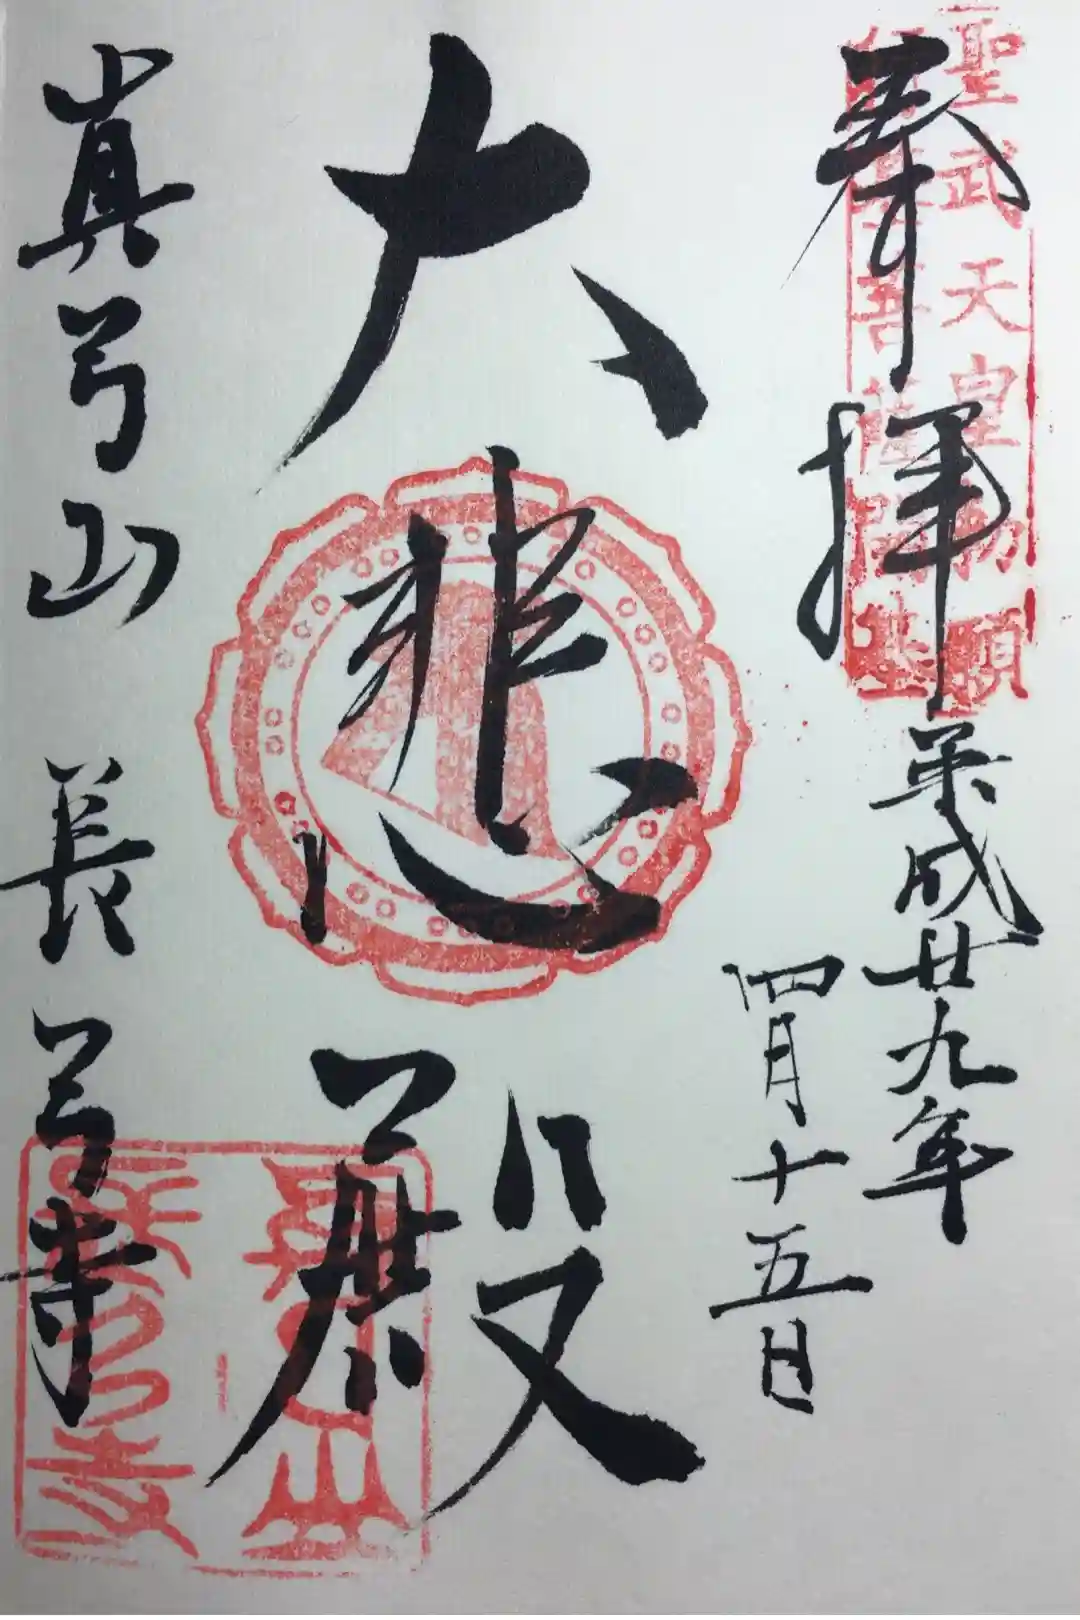 聖武天皇勅願
行基菩薩開基
奉拝
平成廿九年
四月十五日
大悲殿
真弓山 長弓寺
真弓山
長弓寺